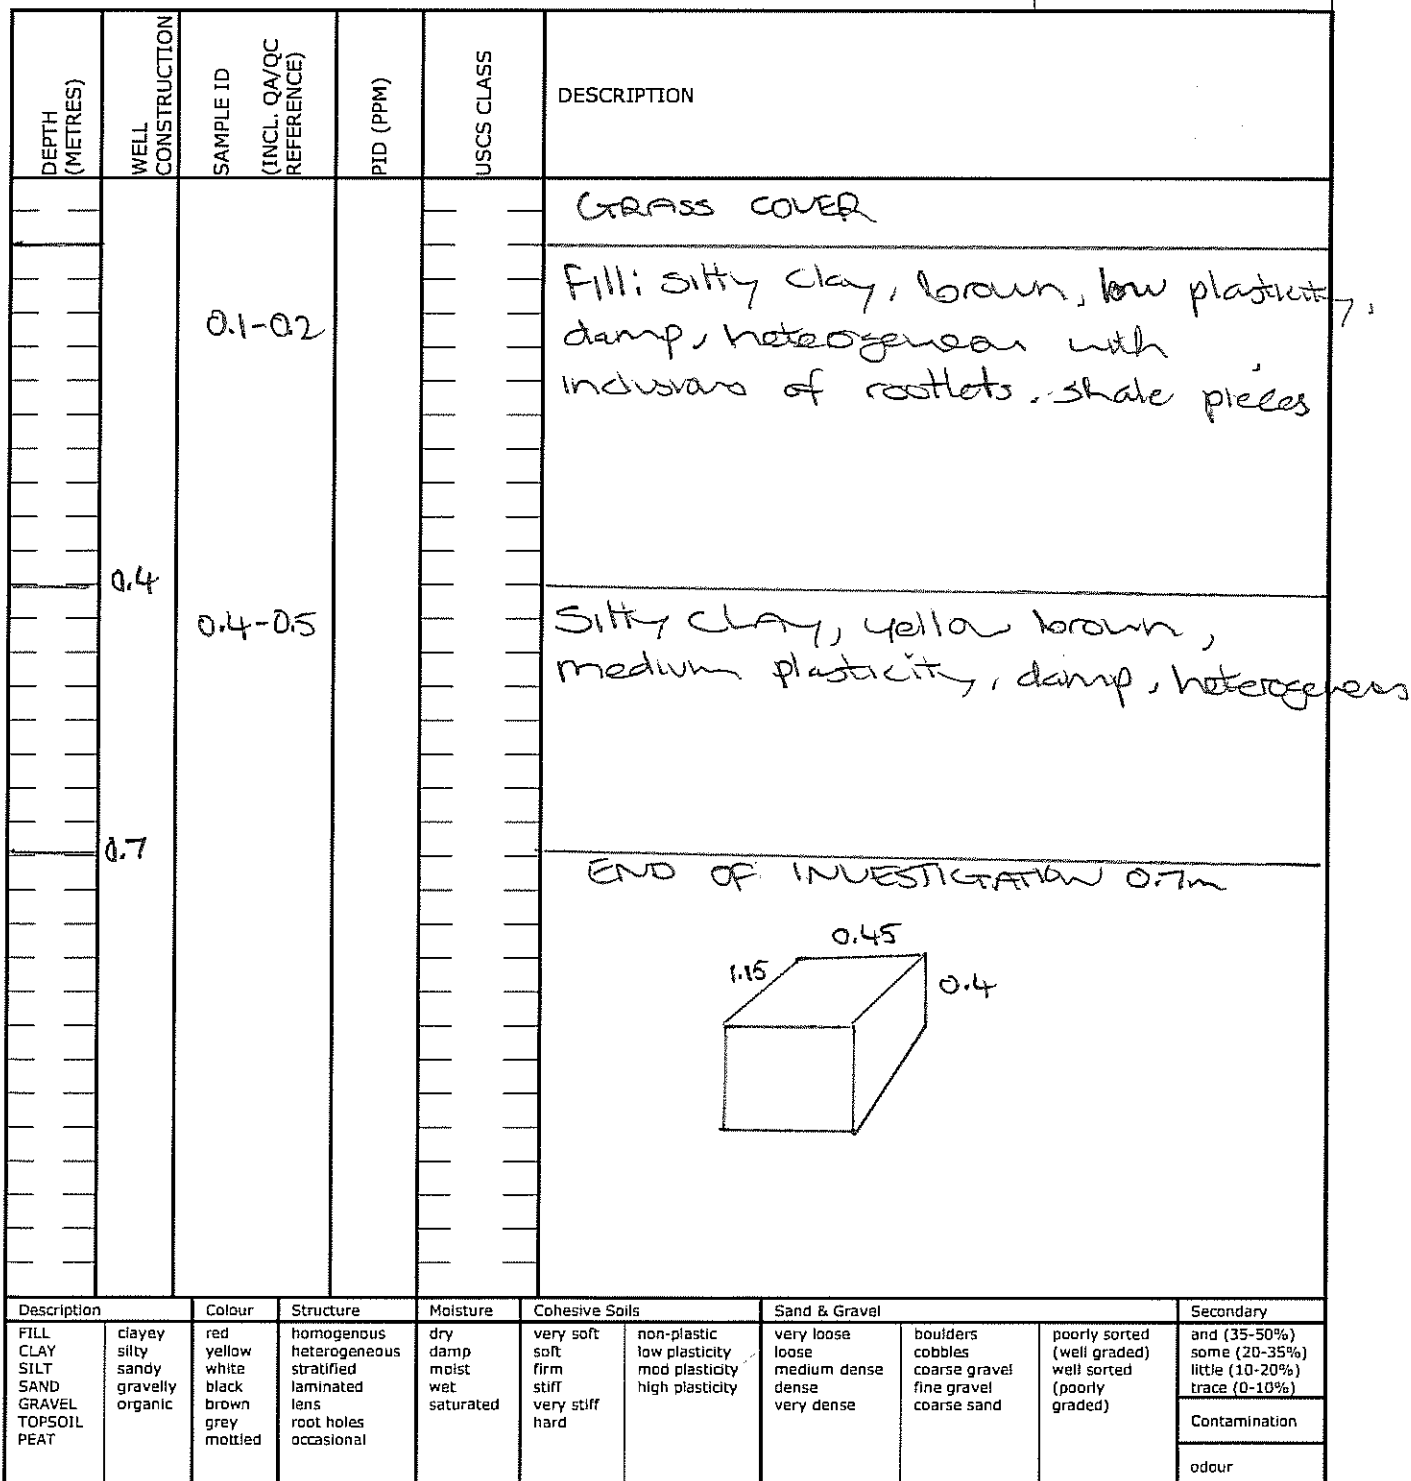 DEPTH
(METRES)
WELL
CONSTRUCTION
SAMPLE ID
(INCL. QA/QC
REFERENCE)
PID (PPM)
USCS CLASS
DESCRIPTION
GRASS COVER
Fill: silty clay, brown, low plasticity,
0.1-0.2
damp, heterogeneous with
inclusions of rootlets, shale pieces
0.4
0.4-0.5
Silty CLAY, yellow brown,
medium plasticity, damp, heterogeneous
0.7
END OF INVESTIGATION 0.7m
0.45
1.15
0.4
Description
FILL
CLAY
SILT
SAND
GRAVEL
TOPSOIL
PEAT
clayey
silty
sandy
gravelly
organic
Colour
red
yellow
white
black
brown
grey
mottled
Structure
homogenous
heterogeneous
stratified
laminated
lens
root holes
occasional
Moisture
dry
damp
moist
wet
saturated
Cohesive Soils
very soft
soft
firm
stiff
very stiff
hard
non-plastic
low plasticity
mod plasticity
high plasticity
Sand & Gravel
very loose
loose
medium dense
dense
very dense
boulders
cobbles
coarse gravel
fine gravel
coarse sand
poorly sorted
(well graded)
well sorted
(poorly
graded)
Secondary
and (35-50%)
some (20-35%)
little (10-20%)
trace (0-10%)
Contamination
odour